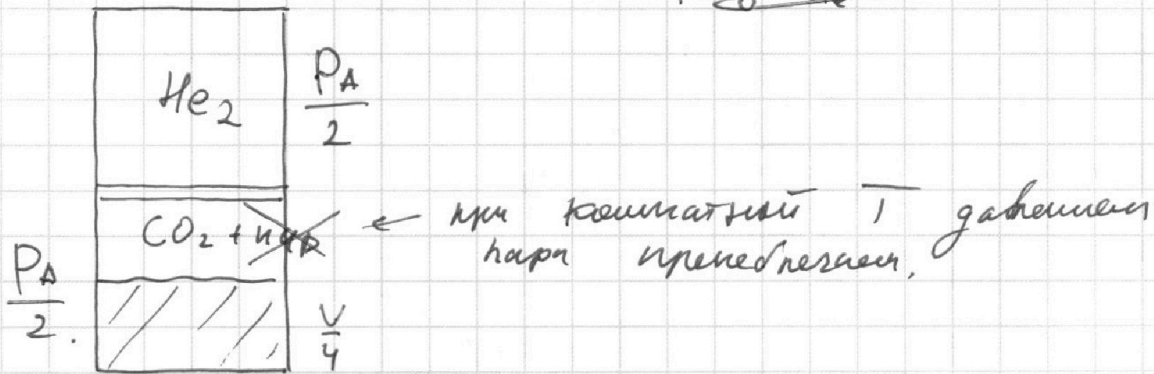 He₂
P_A/2
CO₂ + пар ← при комнатной T давлением
пара пренебрегаем.
P_A/2.
V/4